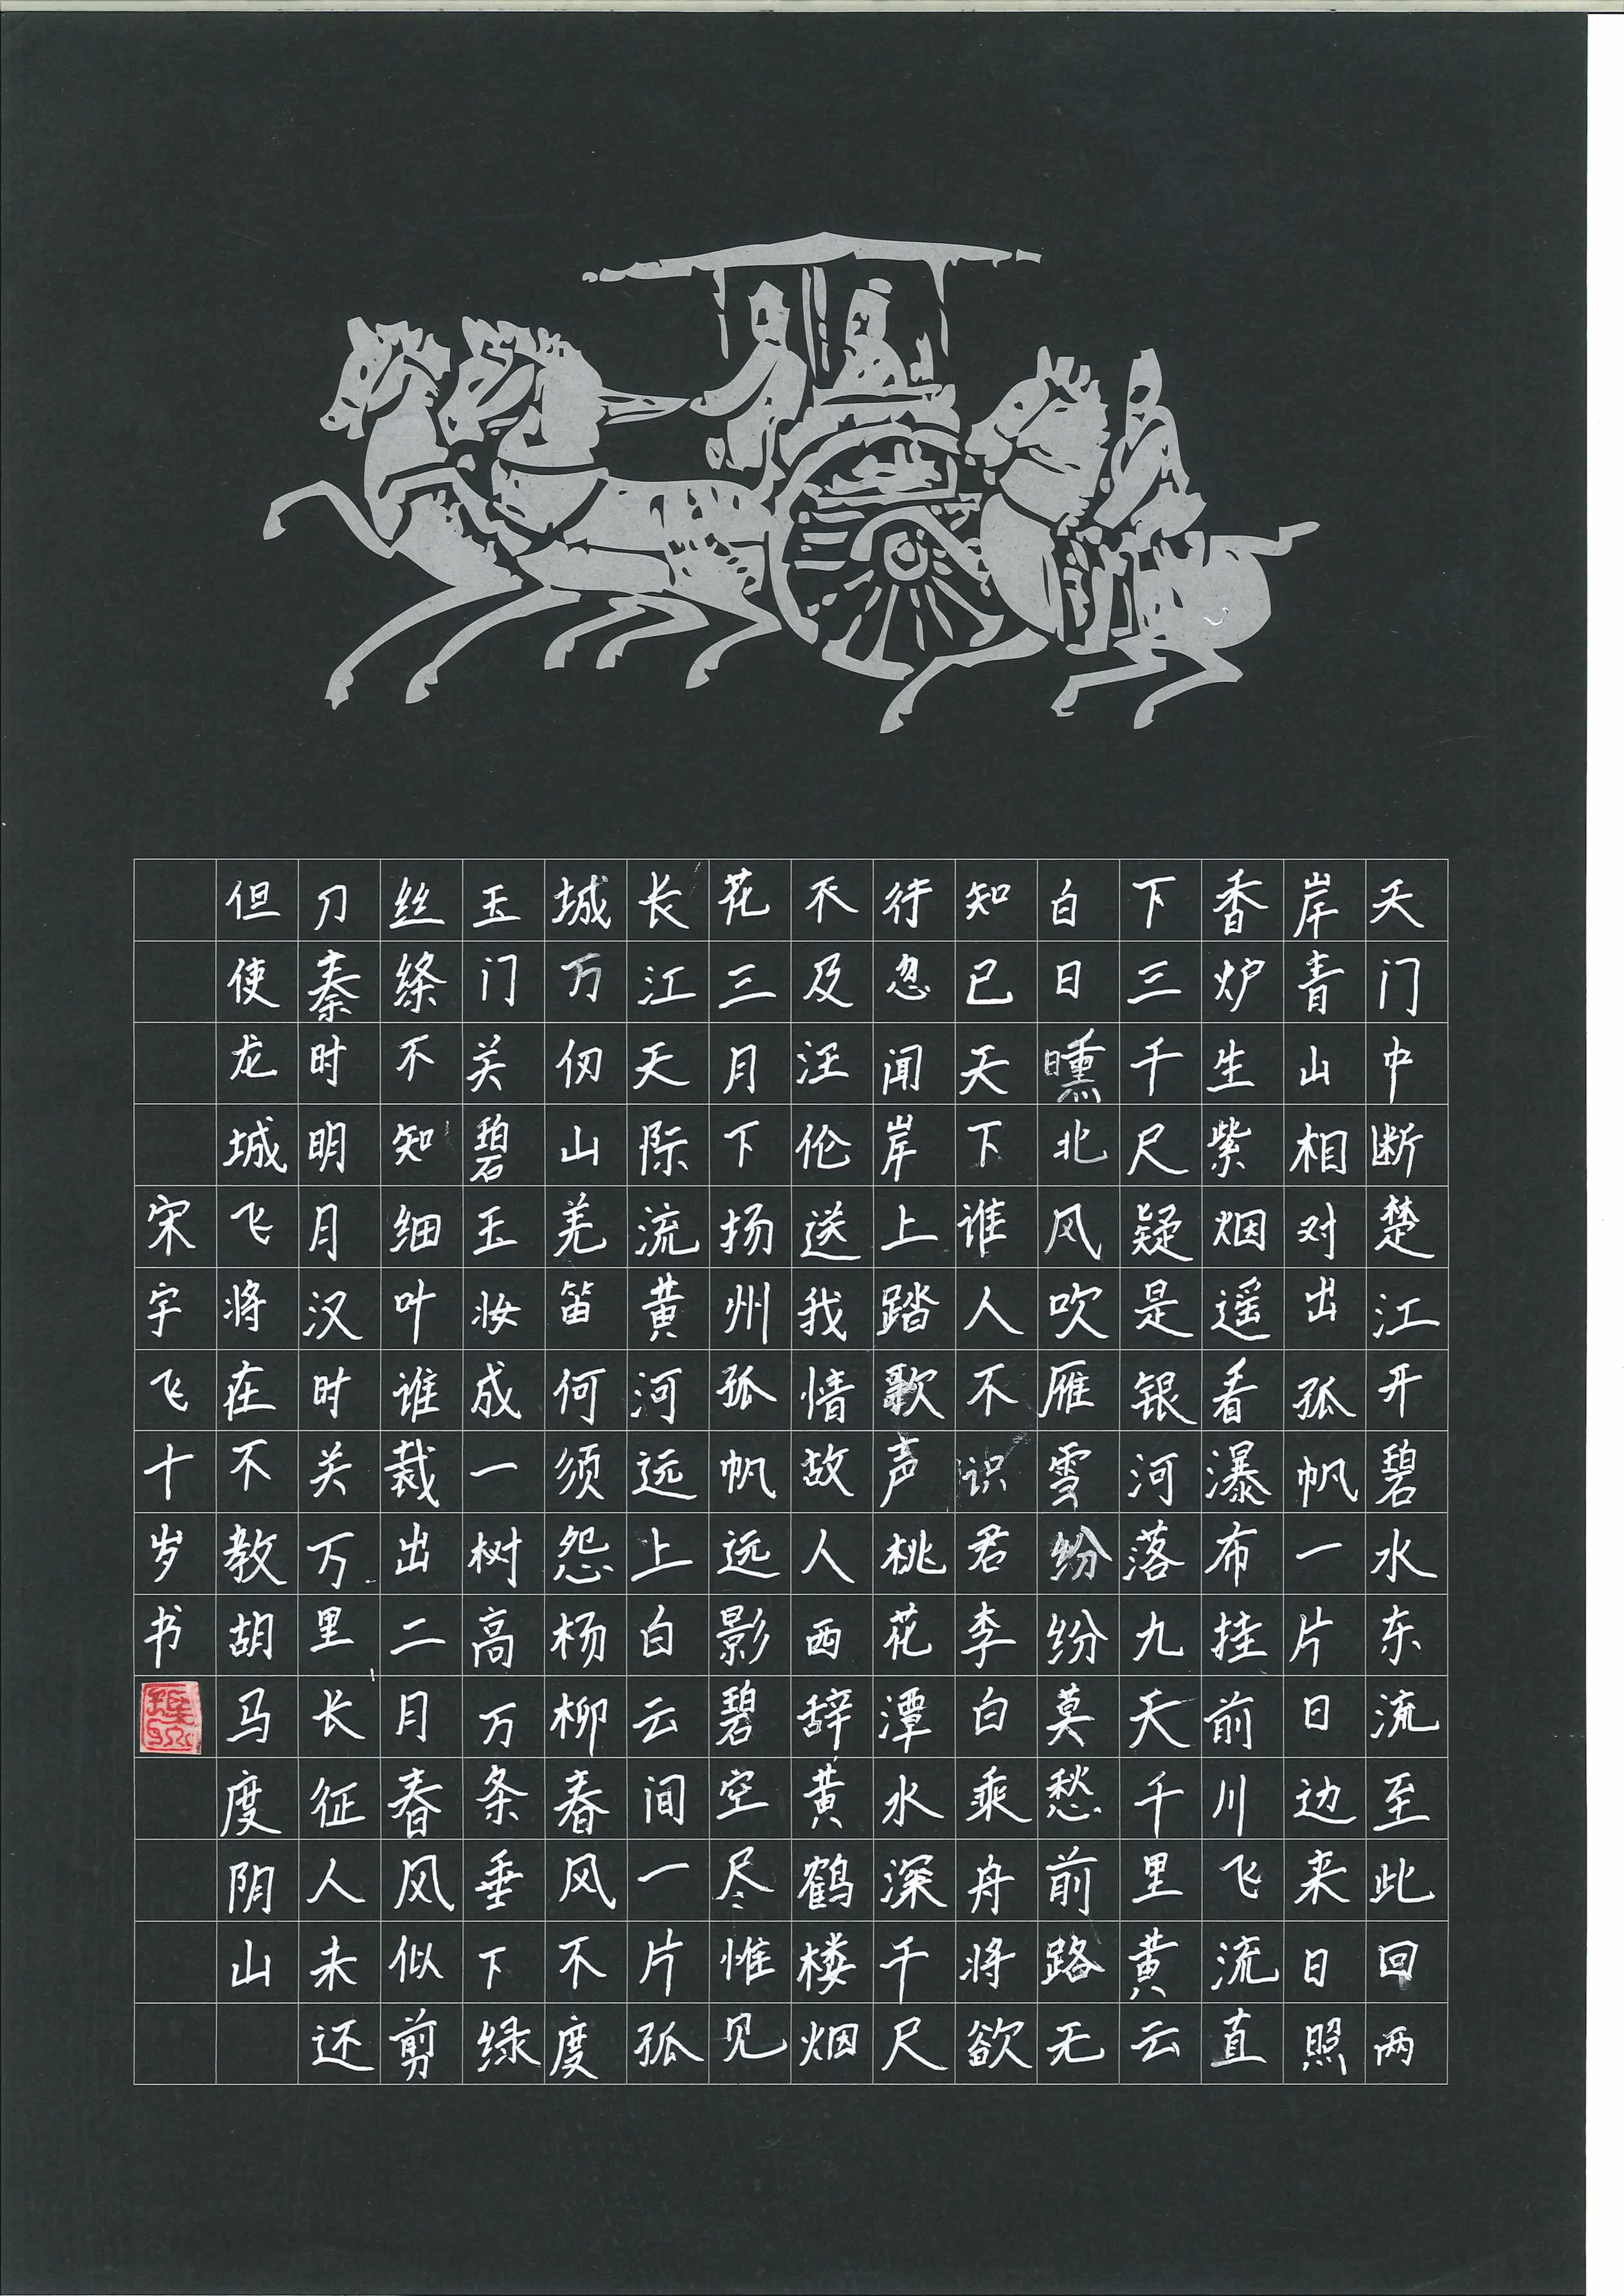 天门中断楚江开碧水东流至此回两
岸青山相对出孤帆一片日边来日照
香炉生紫烟遥看瀑布挂前川飞流直
下三千尺疑是银河落九天千里黄云
白日曛北风吹雁雪纷纷莫愁前路无
知已天下谁人不识君李白乘舟将欲
行忽闻岸上踏歌声桃花潭水深千尺
不及汪伦送我情故人西辞黄鹤楼烟
花三月下扬州孤帆远影碧空尽惟见
长江天际流黄河远上白云间一片孤
城万仞山羌笛何须怨杨柳春风不度
玉门关碧玉妆成一树高万条垂下绿
丝绦不知细叶谁裁出二月春风似剪
刀秦时明月汉时关万里长征人未还
但使龙城飞将在不教胡马度阴山
宋宇飞十岁书